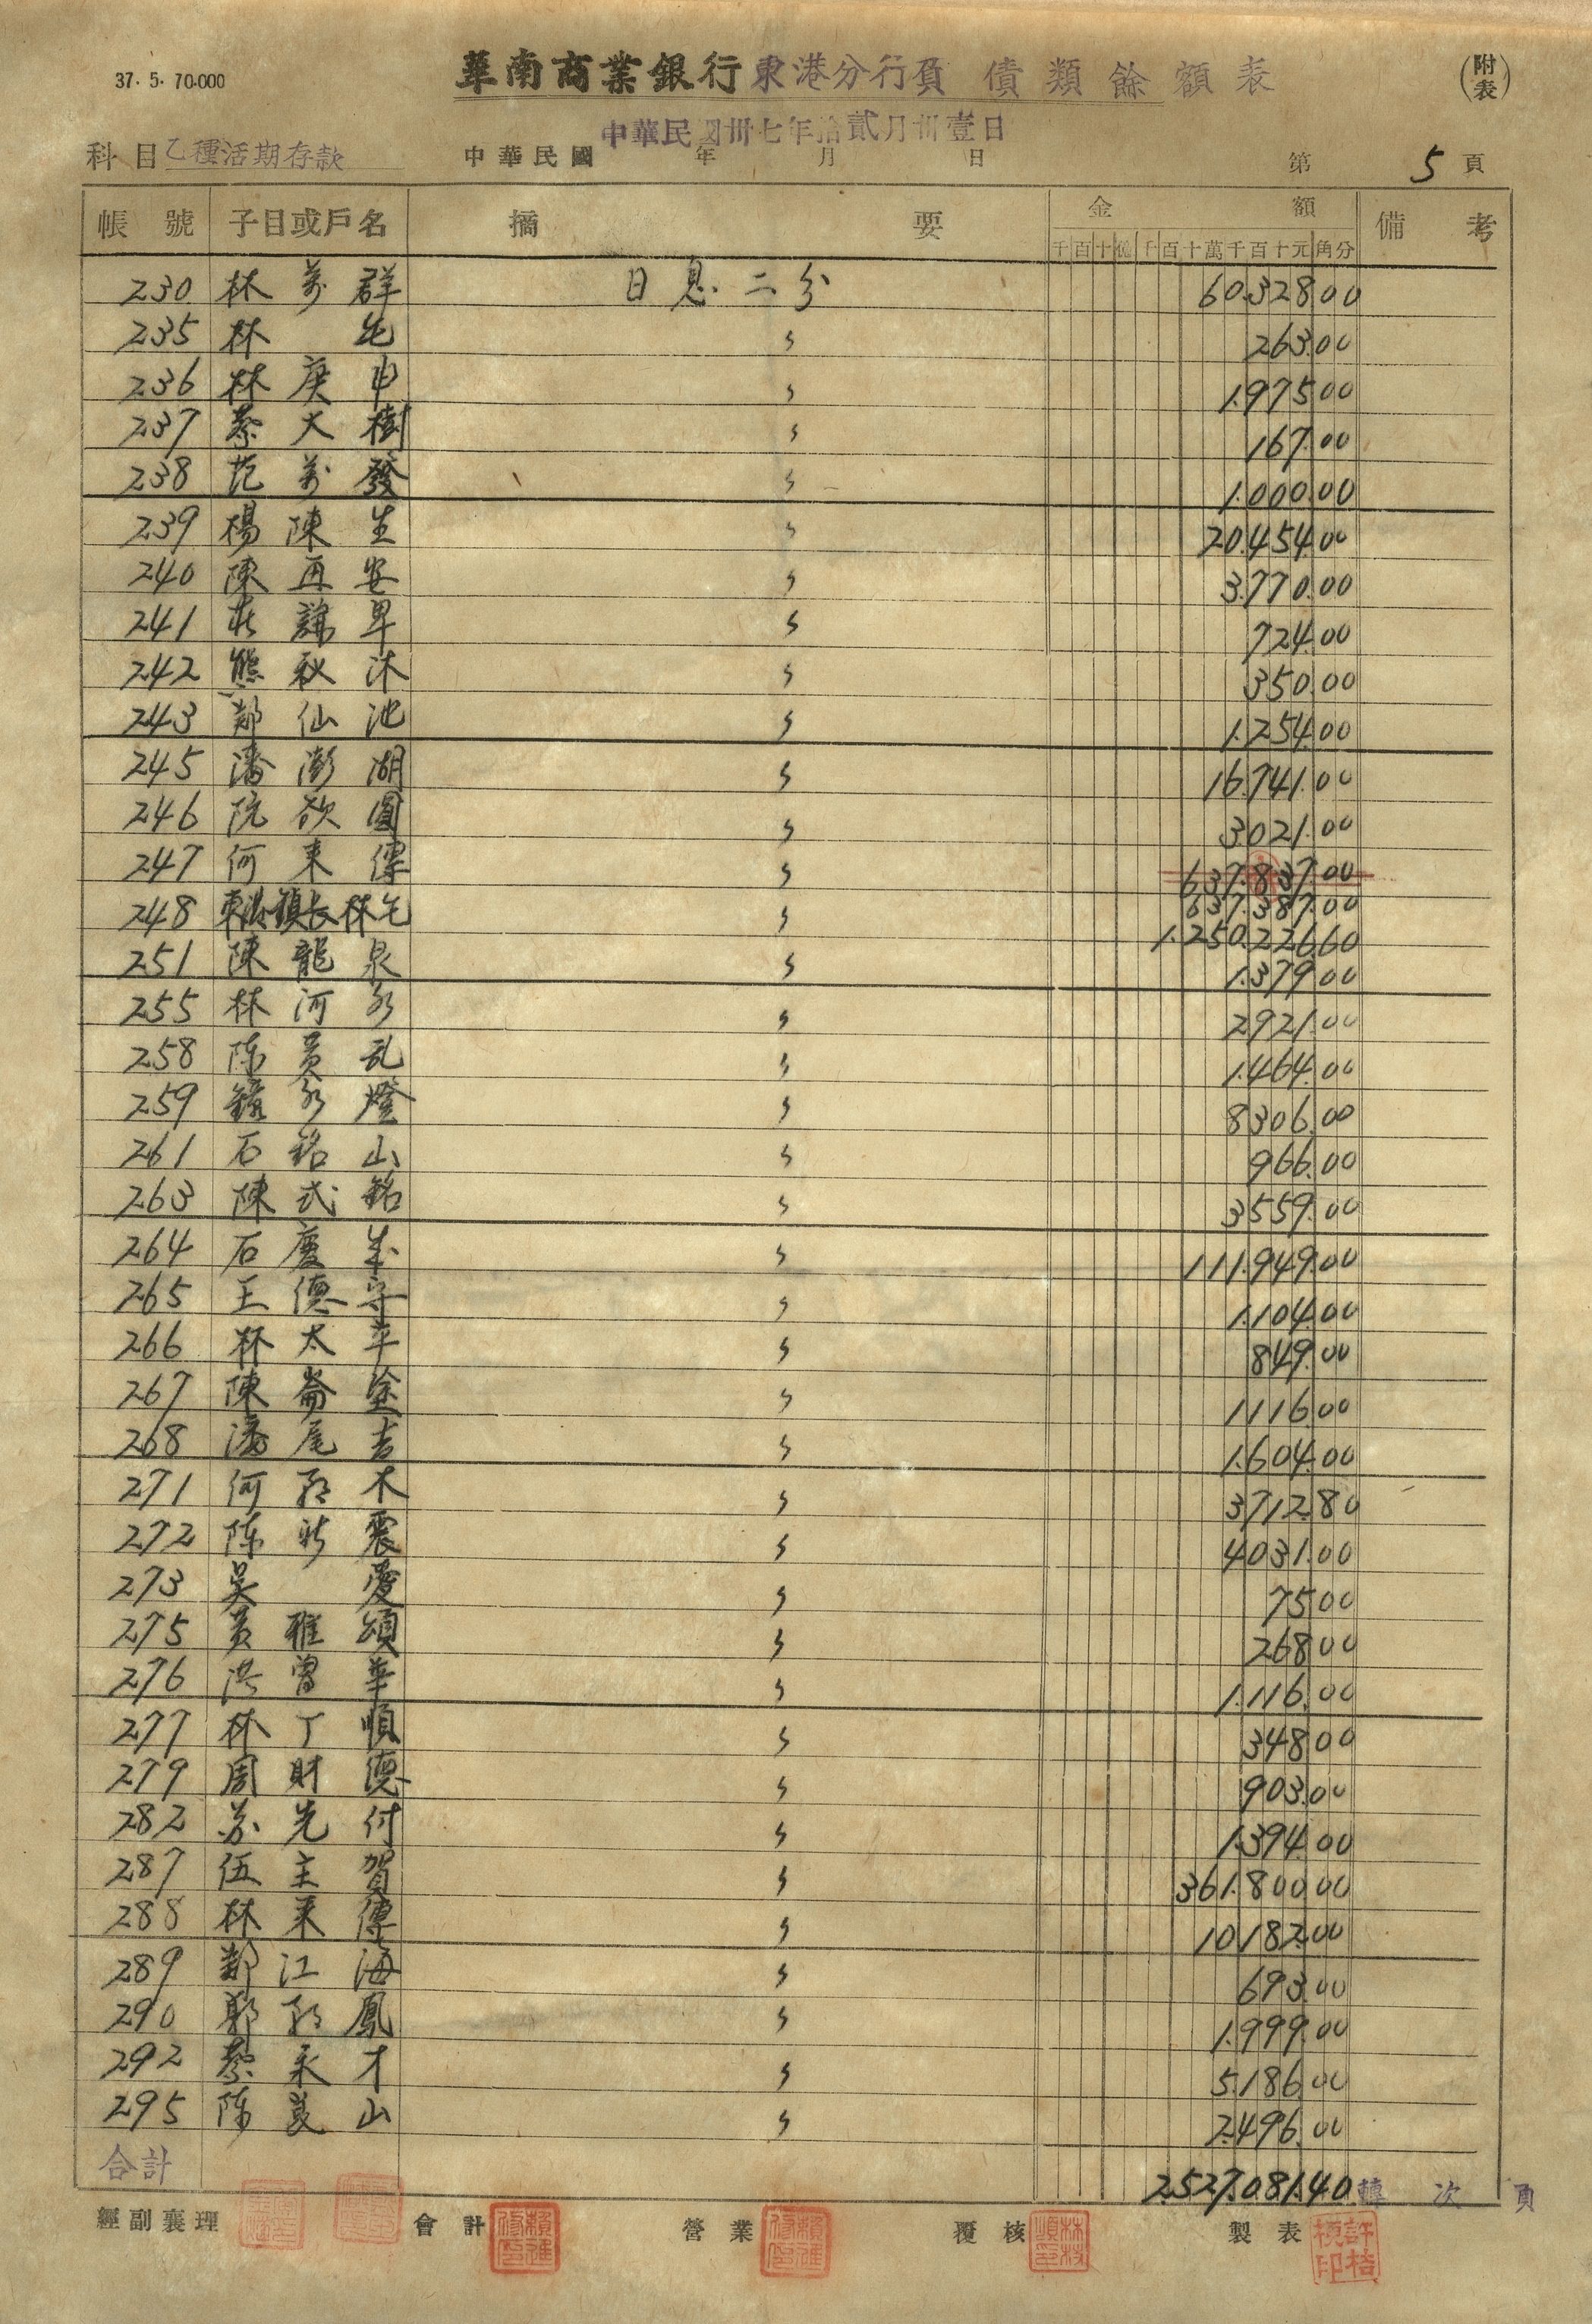 37. 5. 70.000
華南商業銀行東港分行負債類餘額表
(附表)
中華民國卅七年拾貳月卅壹日
科目 乙種活期存款 中華民國 年 月 日 第 5 頁
帳號 子目或戶名 摘要 金額 備考
千百十億千百十萬千百十元角分
230 林萬群 日息二分 60.328.00
235 林 〃 263.00
236 林庚申 〃 1.975.00
237 蔡大樹 〃 167.00
238 范萬發 〃 1.000.00
239 楊陳生 〃 20.454.00
240 陳再安 〃 3.770.00
241 〃 724.00
242 熊秋沐 〃 350.00
243 鄭仙池 〃 1.254.00
245 潘澎湖 〃 16.741.00
246 阮欲圓 〃 3021.00
247 何来傳 〃 637.837.00
637.387.00
248 東港鎮長林 〃 1.250.226.60
251 陳龍泉 〃 1.379.00
255 林河永 〃 2921.00
258 陈黃乱 〃 1.464.00
259 鐘永燈 〃 8306.00
261 石銘山 〃 966.00
263 陳武銘 〃 3559.00
264 石慶 〃 111.949.00
265 王德守 〃 1.104.00
266 林太平 〃 849.00
267 陳崙 〃 1116.00
268 潘尾吉 〃 1.604.00
271 何 木 〃 3712.80
272 陈新震 〃 4031.00
273 吴愛 〃 75.00
275 黃雅頌 〃 268.00
276 洪曾華 〃 1.116.00
277 林丁順 〃 348.00
279 周財德 〃 903.00
282 苏先付 〃 1.394.00
287 伍主賀 〃 361.800.00
288 林来傳 〃 10182.00
289 鄭江海 〃 693.00
290 郭 鳳 〃 1.999.00
292 蔡永才 〃 5.186.00
295 陈 山 〃 2.496.00
合計 2.527.081.40 轉次頁
經副襄理 會計 營業 覆核 製表